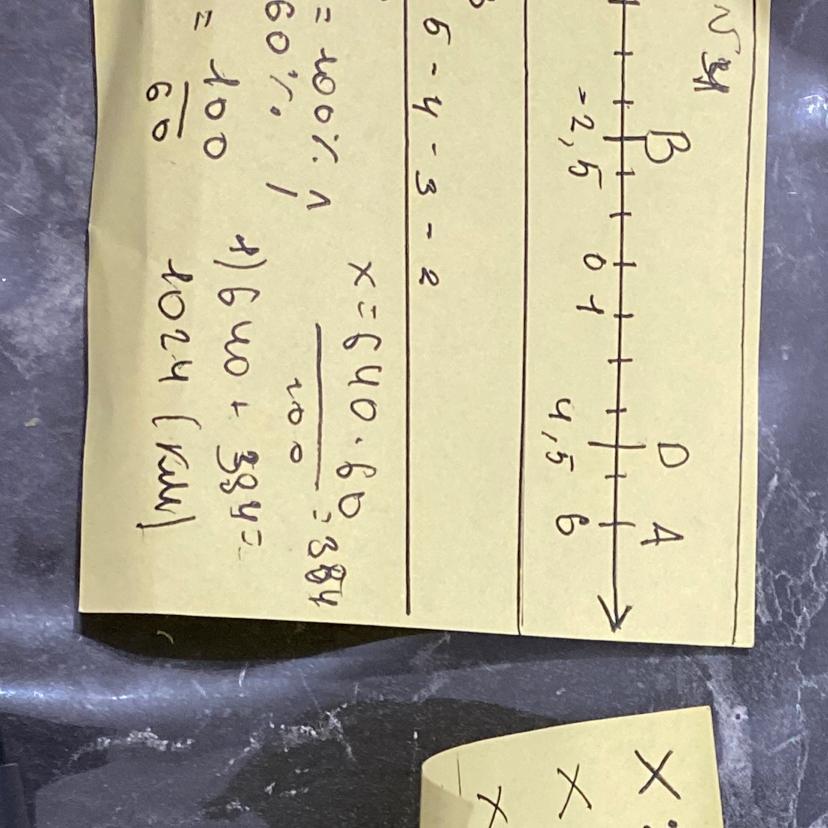 N 4
B D A
-2,5 0 1 4,5 6
5 - 4 - 3 - 2
= 100% ↑
60% |
= 100
60
x = 640 · 60
100
= 384
1) 640 + 384 =
1024 (км)
x
x
x